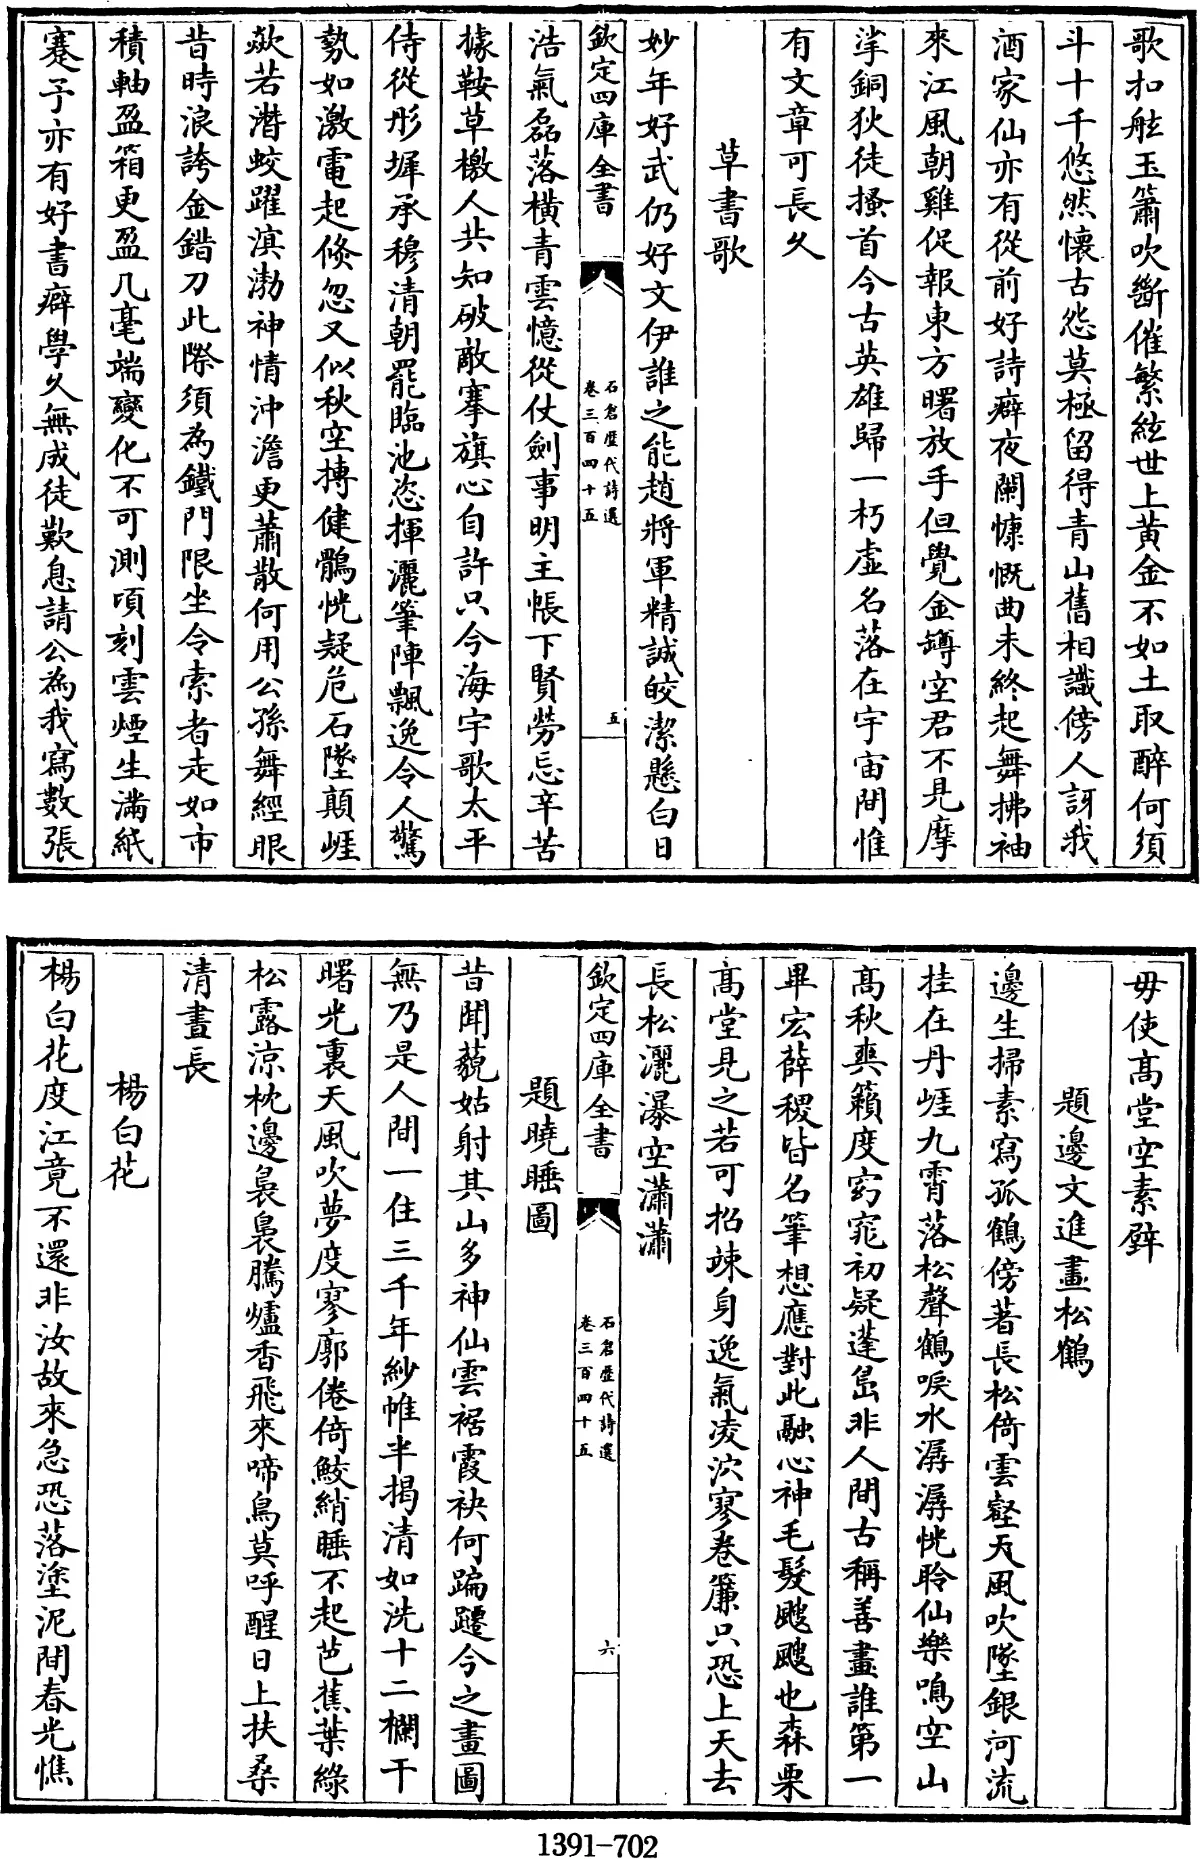 歌扣舷玉簫吹斷催繁絃世上黃金不如土取醉何須
斗十千悠然懷古怨莫極留得青山舊相識傍人訝我
酒家仙亦有從前好詩癖夜闌慷慨曲未終起舞拂袖
來江風朝雞促報東方曙放手但覺金罇空君不見摩
挲銅狄徒搔首今古英雄歸一朽虛名落在宇宙間惟
有文章可長久
草書歌
妙年好武仍好文伊誰之能趙將軍精誠皎潔懸白日
欽定四庫全書
石倉歷代詩選
卷三百四十五
五
浩氣磊落橫青雲憶從仗劍事明主帳下賢勞忘辛苦
據鞍草檄人共知破敵搴旗心自許只今海宇歌太平
侍從彤墀承穆清朝罷臨池恣揮灑筆陣飄逸令人驚
勢如激電起倏忽又似秋空搏健鶻恍疑危石墜顛崖
歘若潛蛟躍溟渤神情沖澹更蕭散何用公孫舞經眼
昔時浪誇金錯刀此際須為鐵門限坐令索者走如市
積軸盈箱更盈几毫端變化不可測頃刻雲煙生滿紙
蹇予亦有好書癖學久無成徒歎息請公為我寫數張
毋使高堂空素壁
題邊文進畫松鶴
邊生掃素寫孤鶴傍著長松倚雲壑天風吹墜銀河流
挂在丹崖九霄落松聲鶴唳水潺潺恍聆仙樂鳴空山
高秋爽籟度窈窕初疑蓬島非人間古稱善畫誰第一
畢宏薛稷皆名筆想應對此融心神毛髮颼颼也森栗
高堂見之若可招竦身逸氣凌泬寥卷簾只恐上天去
長松灑瀑空瀟瀟
欽定四庫全書
石倉歷代詩選
卷三百四十五
六
題曉睡圖
昔聞藐姑射其山多神仙雲裾霞袂何蹁躚今之畫圖
無乃是人間一住三千年紗帷半揭清如洗十二欄干
曙光裏天風吹夢度寥廓倦倚鮫綃睡不起芭蕉葉綠
松露涼枕邊裊裊騰爐香飛來啼鳥莫呼醒日上扶桑
清晝長
楊白花
楊白花度江竟不還非汝故來急恐落塗泥間春光憔
1391-702